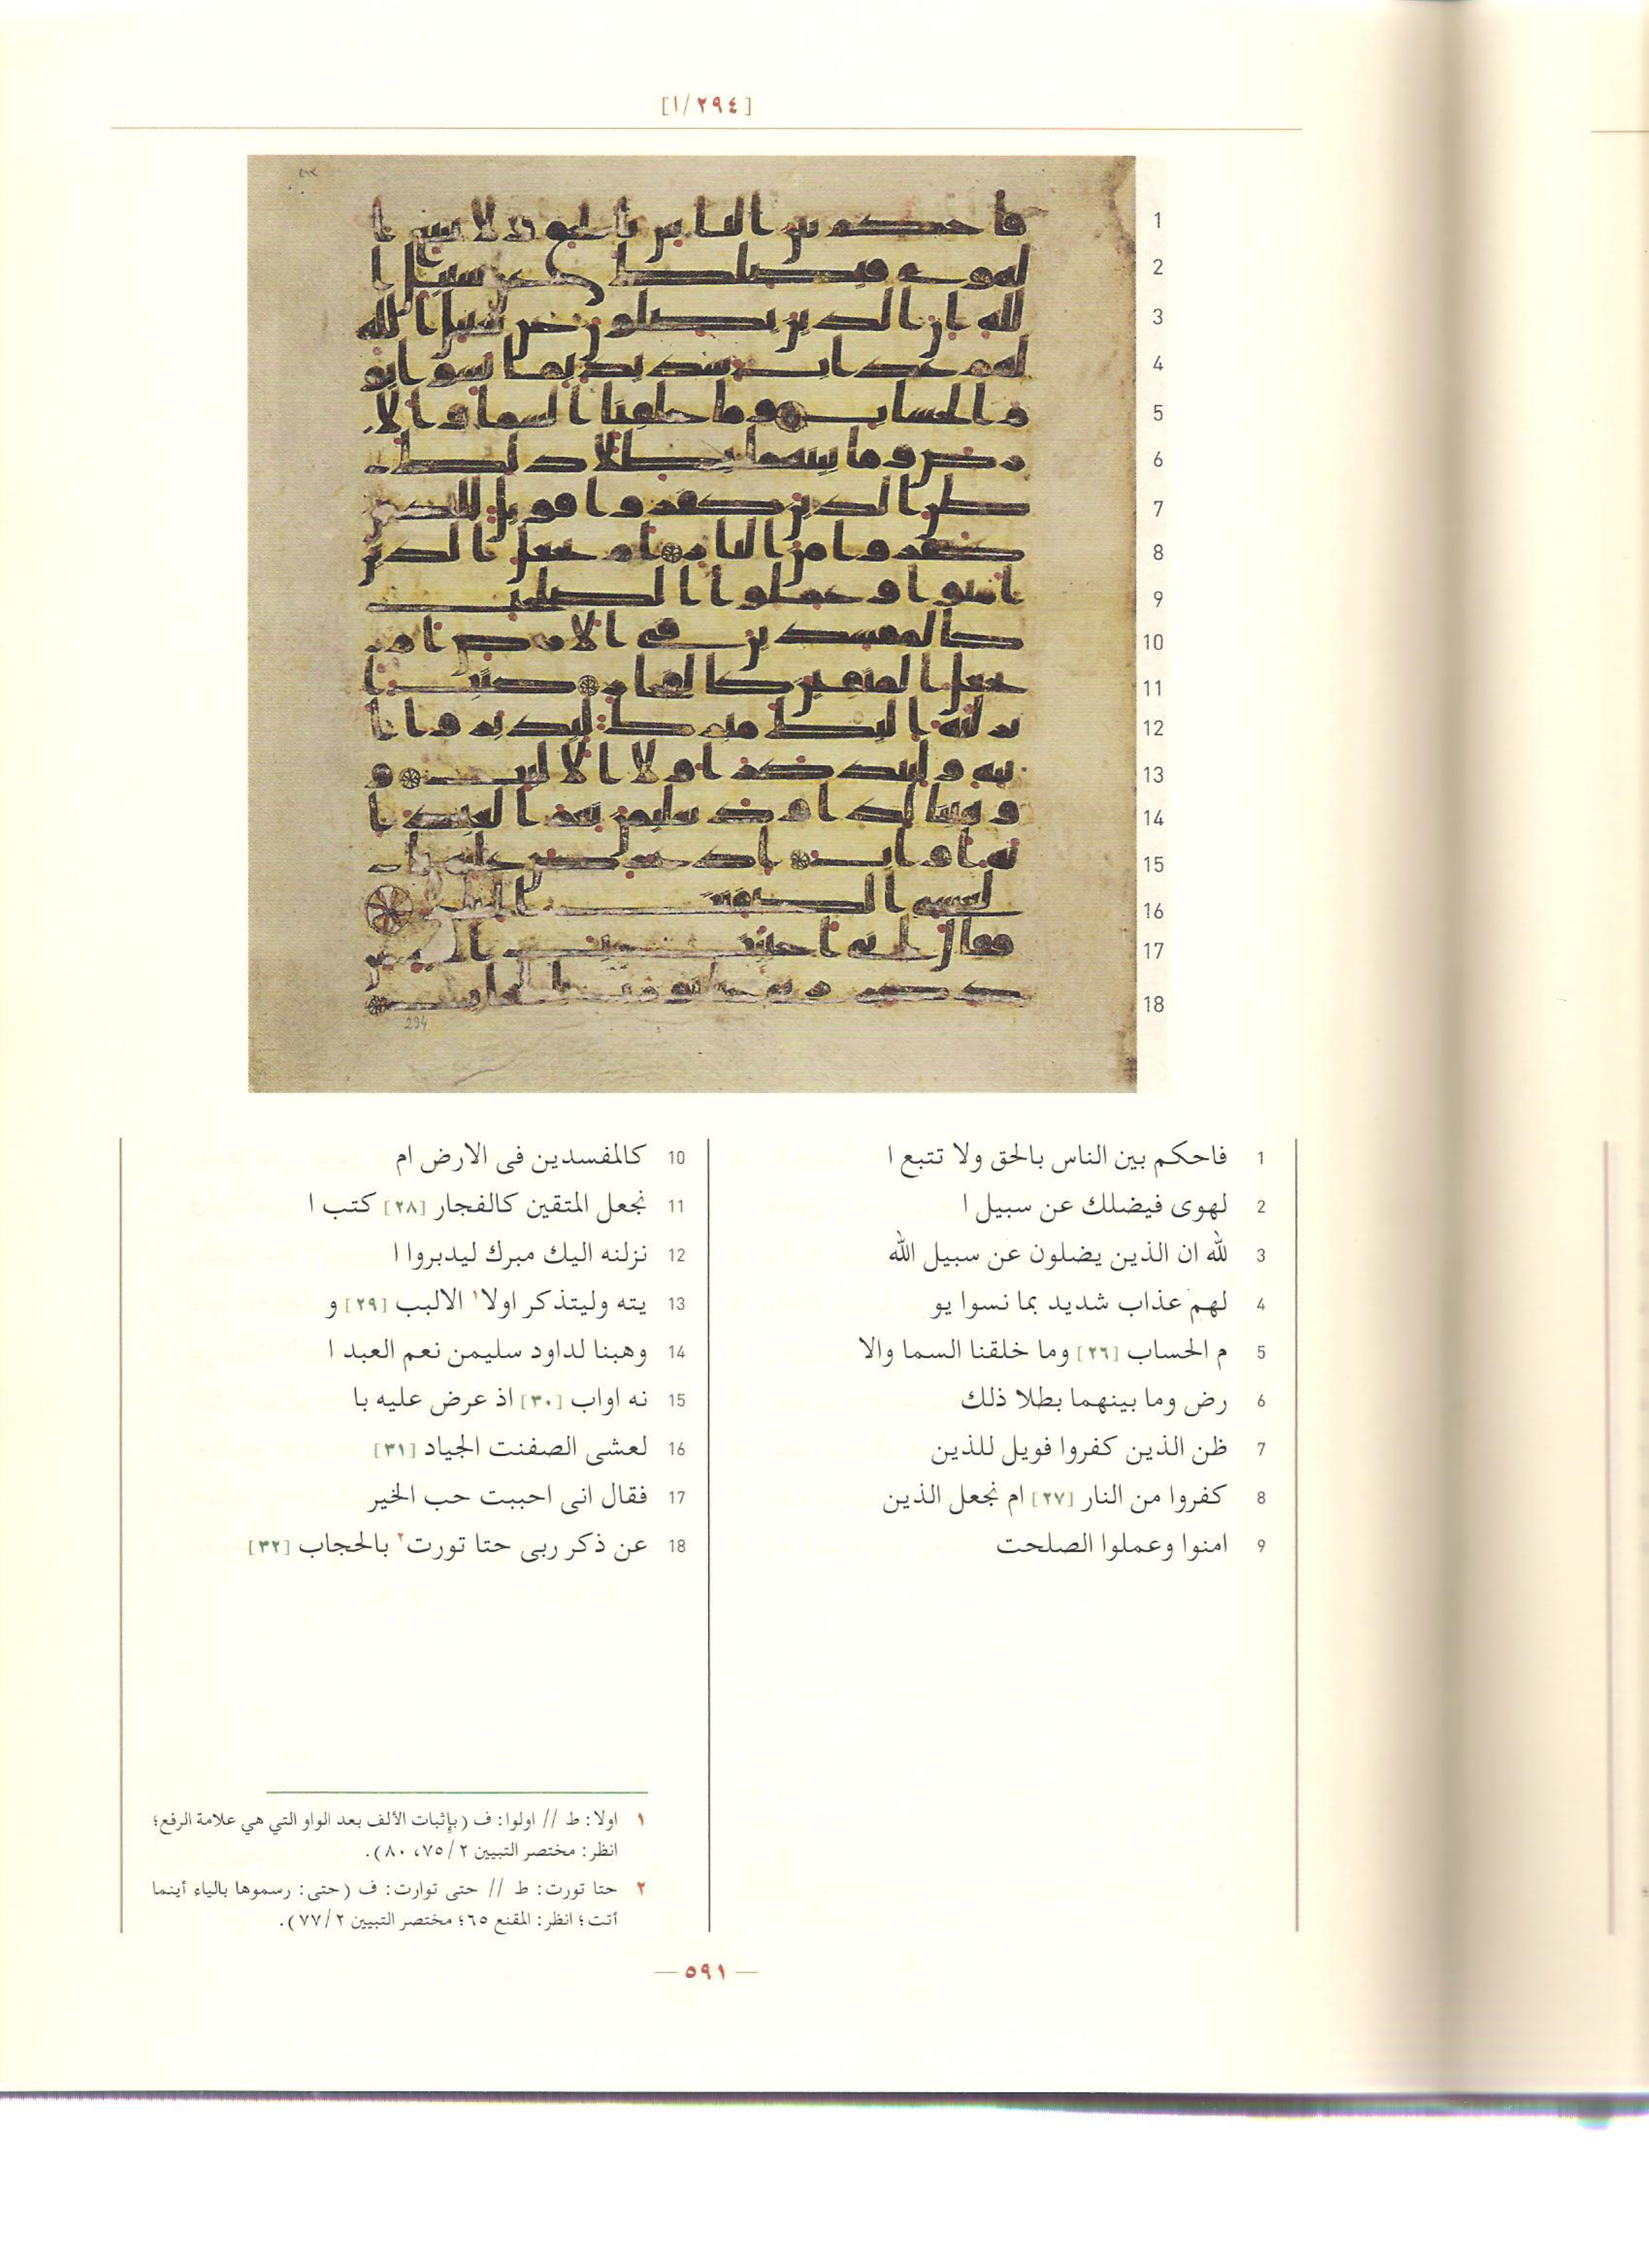 [٢٩٤/١]
1 فاحكم بين الناس بالحق ولا تتبع ا
2 لهوى فيضلك عن سبيل ا
3 لله ان الذين يضلون عن سبيل الله
4 لهم عذاب شديد بما نسوا يو
5 م الحساب [٢٦] وما خلقنا السما والا
6 رض وما بينهما بطلا ذلك
7 ظن الذين كفروا فويل للذين
8 كفروا من النار [٢٧] ام نجعل الذين
9 امنوا وعملوا الصلحت
10 كالمفسدين فى الارض ام
11 نجعل المتقين كالفجار [٢٨] كتب ا
12 نزلنه اليك مبرك ليدبروا ا
13 يته وليتذكر اولا١ الالبب [٢٩] و
14 وهبنا لداود سليمن نعم العبد ا
15 نه اواب [٣٠] اذ عرض عليه با
16 لعشى الصفنت الجياد [٣١]
17 فقال انى احببت حب الخير
18 عن ذكر ربى حتا تورت٢ بالحجاب [٣٢]
١ اولا: ط // اولوا: ف (بإثبات الألف بعد الواو التي هي علامة الرفع؛
انظر: مختصر التبيين ٢/٧٥، ٨٠).
٢ حتا تورت: ط // حتى توارت: ف (حتى: رسموها بالياء أينما
أتت؛ انظر: المقنع ٦٥؛ مختصر التبيين ٢/٧٧).
— ٥٩١ —